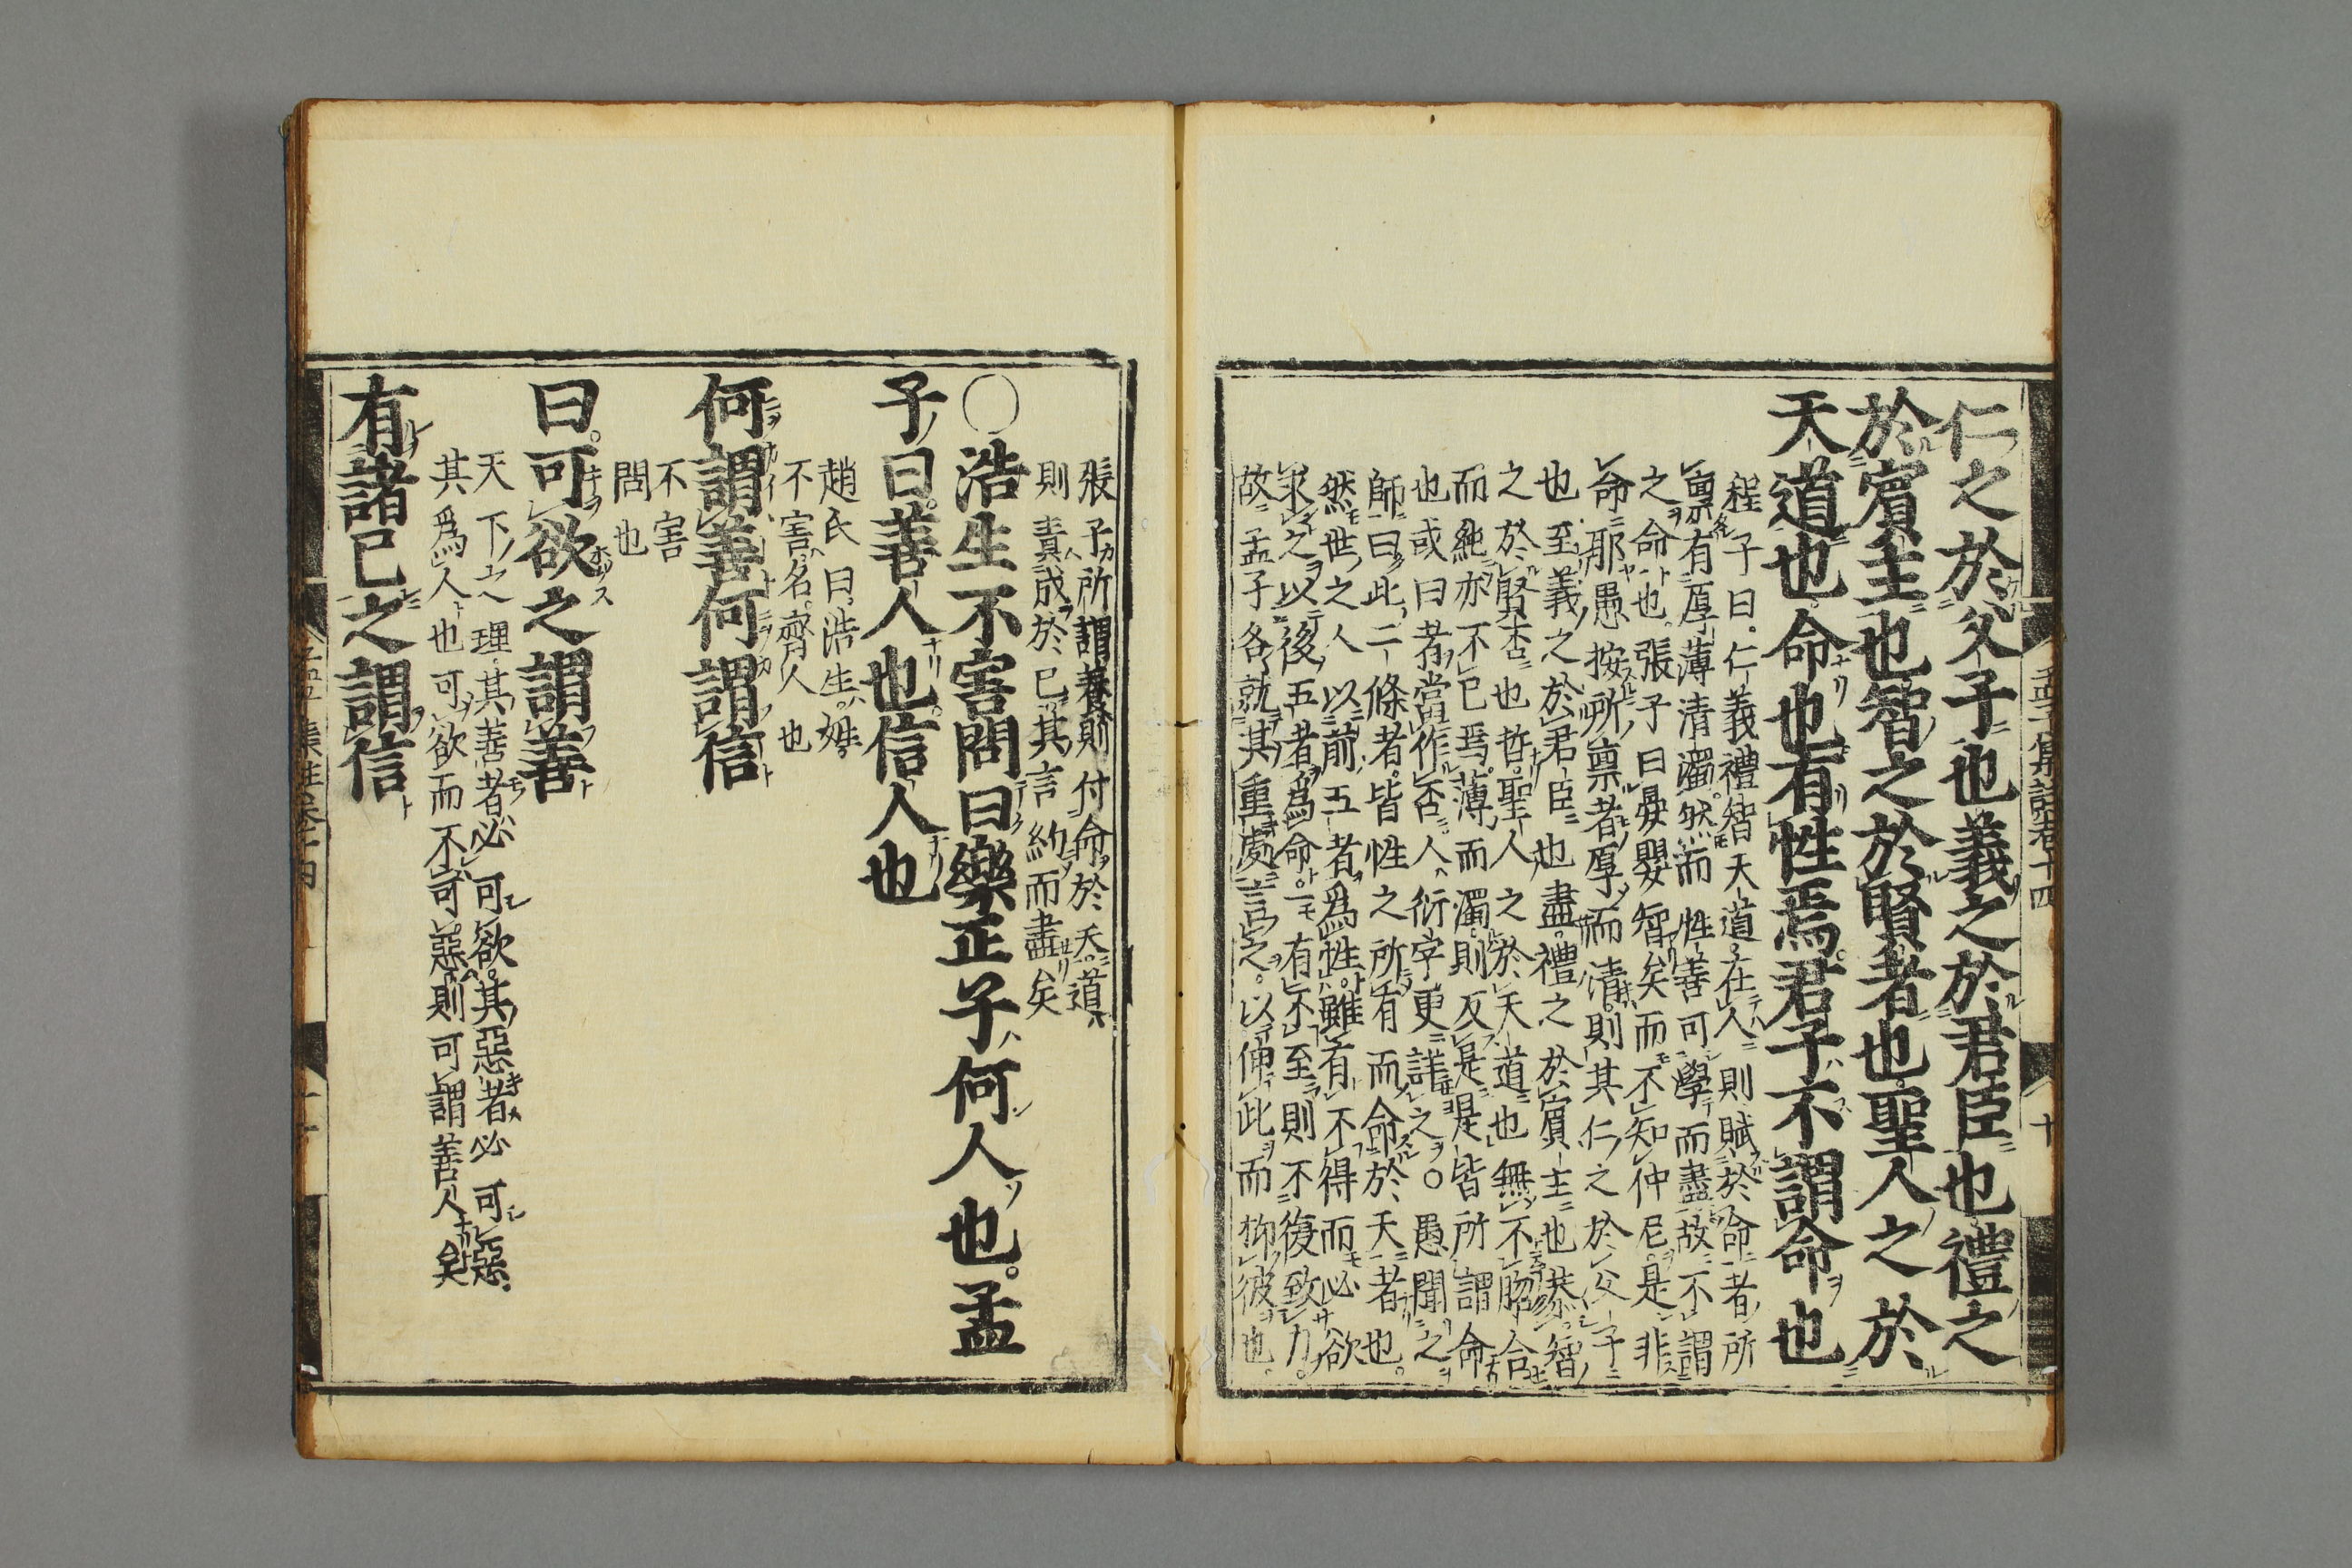 孟子集註卷十四
十
仁之於父子也義之於君臣也禮之
於賓主也智之於賢者也聖人之於
天道也命也有性焉君子不謂命也
程子曰仁義禮智天道在人則賦於命者所
稟有厚薄清濁然而性善可學而盡故不謂
之命也張子曰晏嬰智矣而不知仲尼是非
命耶愚按所稟者厚而清則其仁之於父子
也至義之於君臣也盡禮之於賓主也恭智
之於賢否也哲聖人之於天道也無不脗合
而純亦不已焉薄而濁則反是是皆所謂命
也或曰者當作否人衍字更詳之○愚聞之
師曰此二條者皆性之所有而命於天者也
然世之人以前五者爲性雖有不得而必欲
求之以後五者爲命一有不至則不復致力
故孟子各就其重處言之以伸此而抑彼也
張子所謂養則付命於天道
則責成於己其言約而盡矣
○浩生不害問曰樂正子何人也孟
子曰善人也信人也
趙氏曰浩生姓
不害名齊人也
何謂善何謂信
不害
問也
曰可欲之謂善
天下之理其善者必可欲其惡者必可惡
其爲人也可欲而不可惡則可謂善人矣
有諸己之謂信